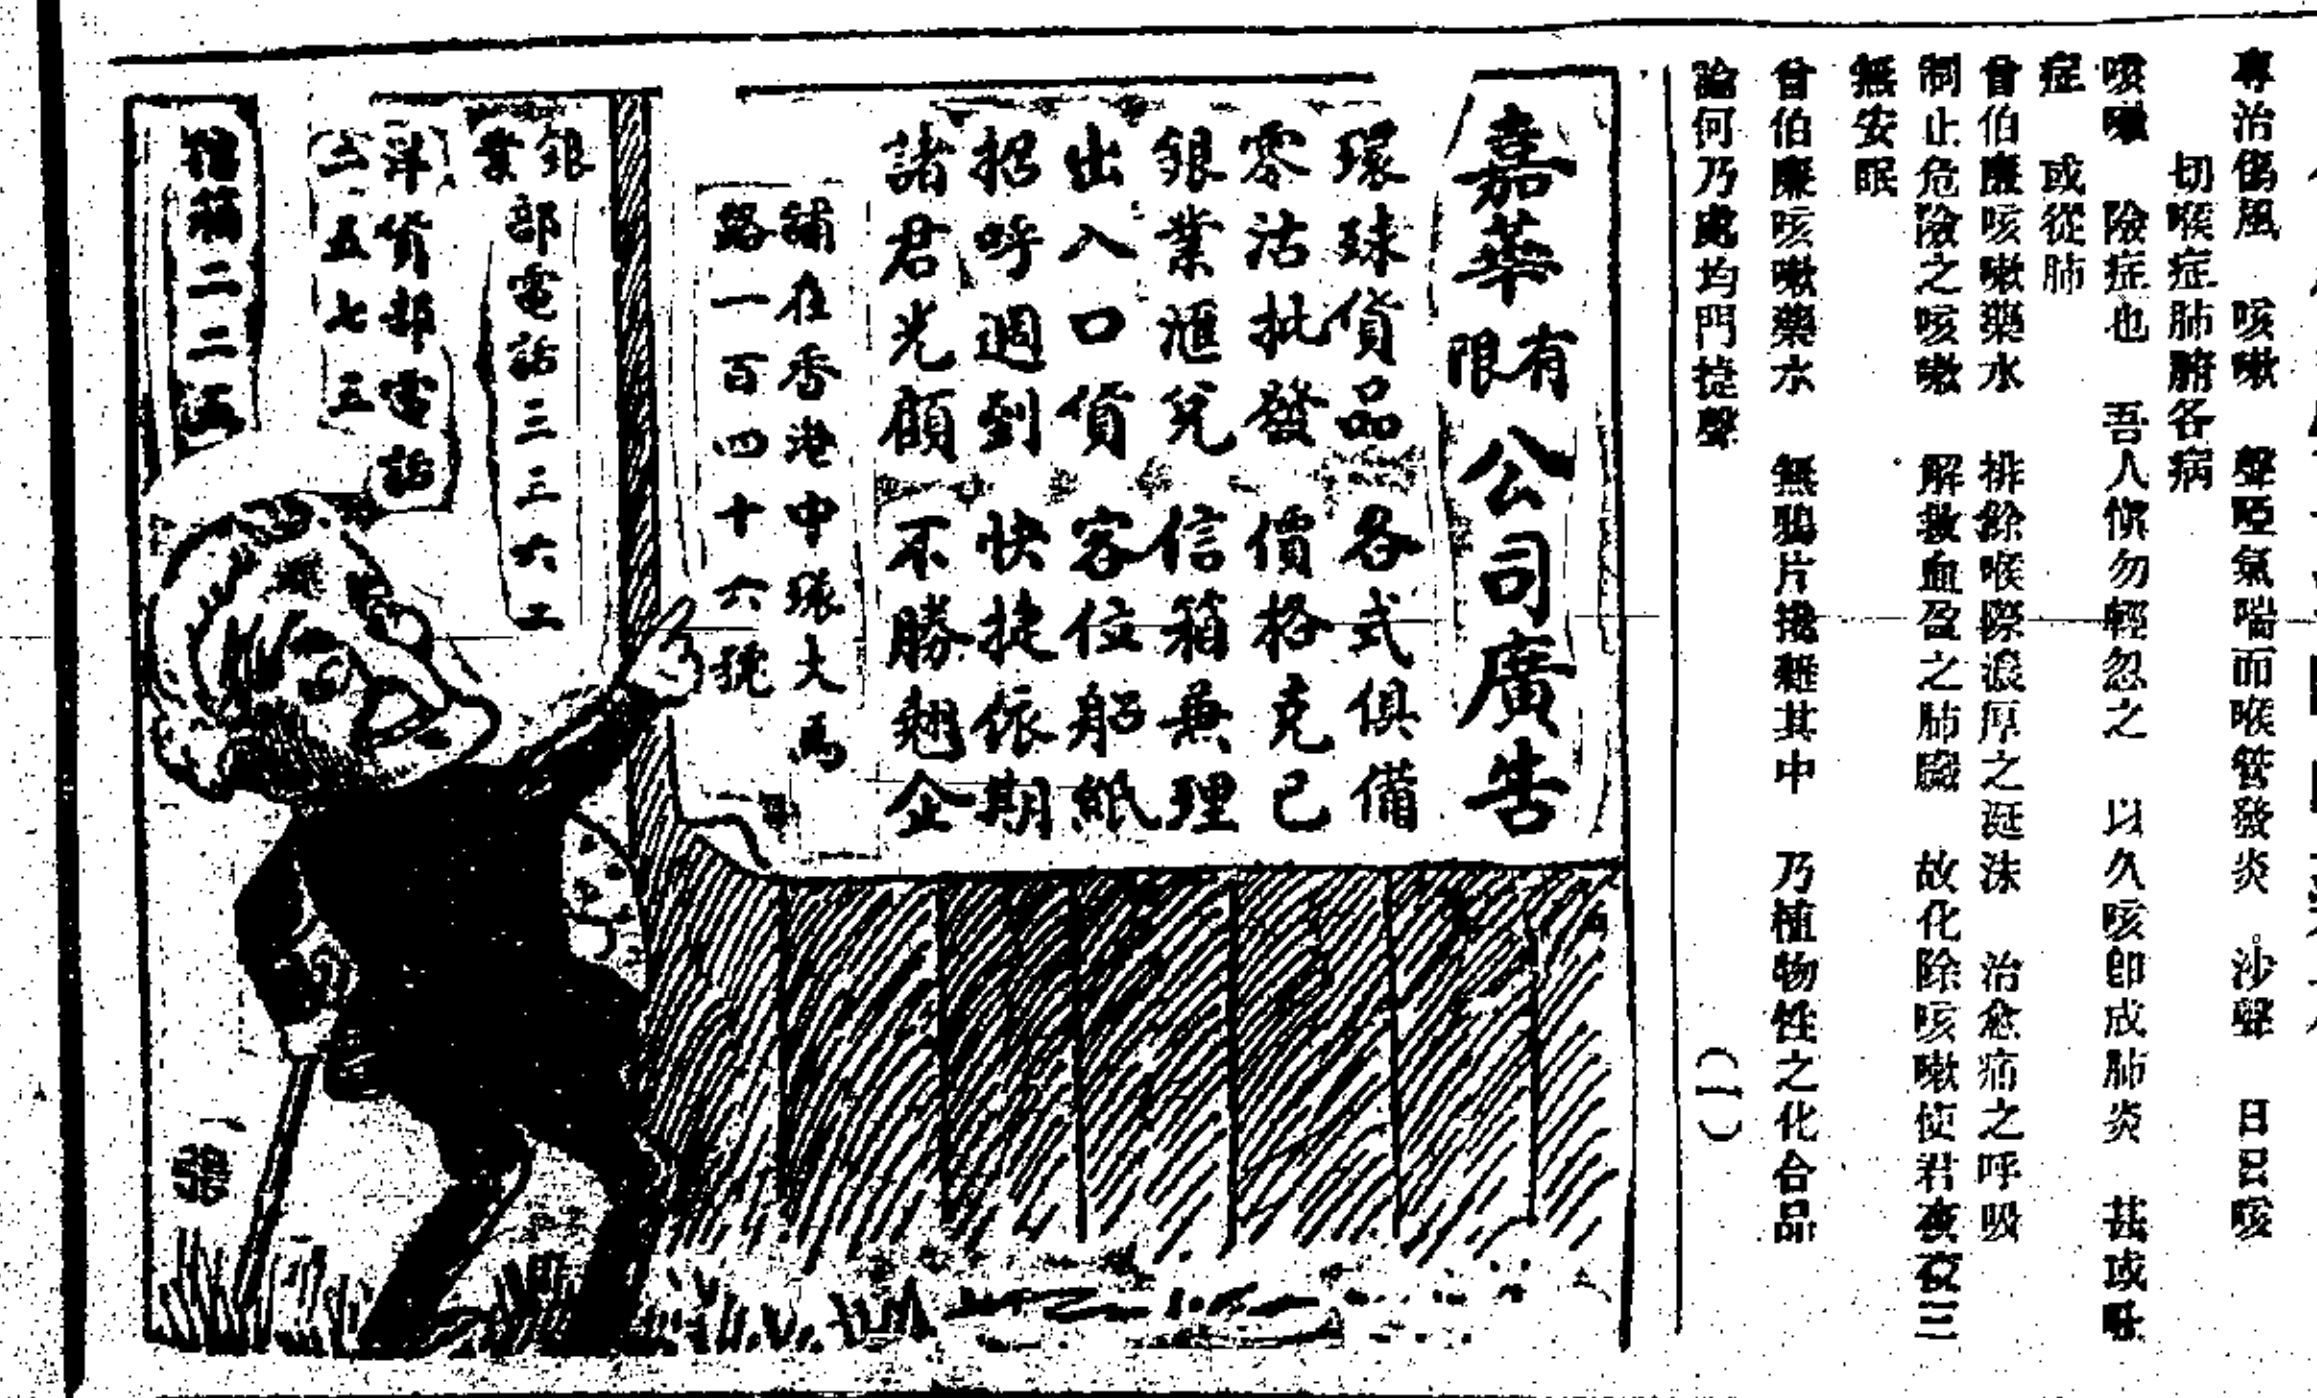 專治傷風　咳嗽　聲啞氣喘而喉管發炎　沙聲　日日咳
切喉症肺腑各病
咳嗽　險症也　吾人愼勿輕忽之　以久咳卽成肺炎　甚或
症　或從肺
曾伯廉咳嗽藥水　排除喉際濃厚之涎沫　治愈痛之呼吸
制止危險之咳嗽　解救血盈之肺臟　故化除咳嗽使君夜夜
無安眠
曾伯廉咳嗽藥水　無鴉片攙雜其中　乃植物性之化合品
論何乃處均門捷聲
(一)
嘉華有限公司廣告
環球貨品　各式俱備
零沽批發　價格克己
銀業滙兌　信箱兼理
出入口貨　客位船紙
招呼週到　快捷依期
諸君光顧　不勝翹企
舖在香港中環大馬
路一百四十六號
銀業部電話三三六二
洋貨部電話
二五七三
信箱二二五
一號